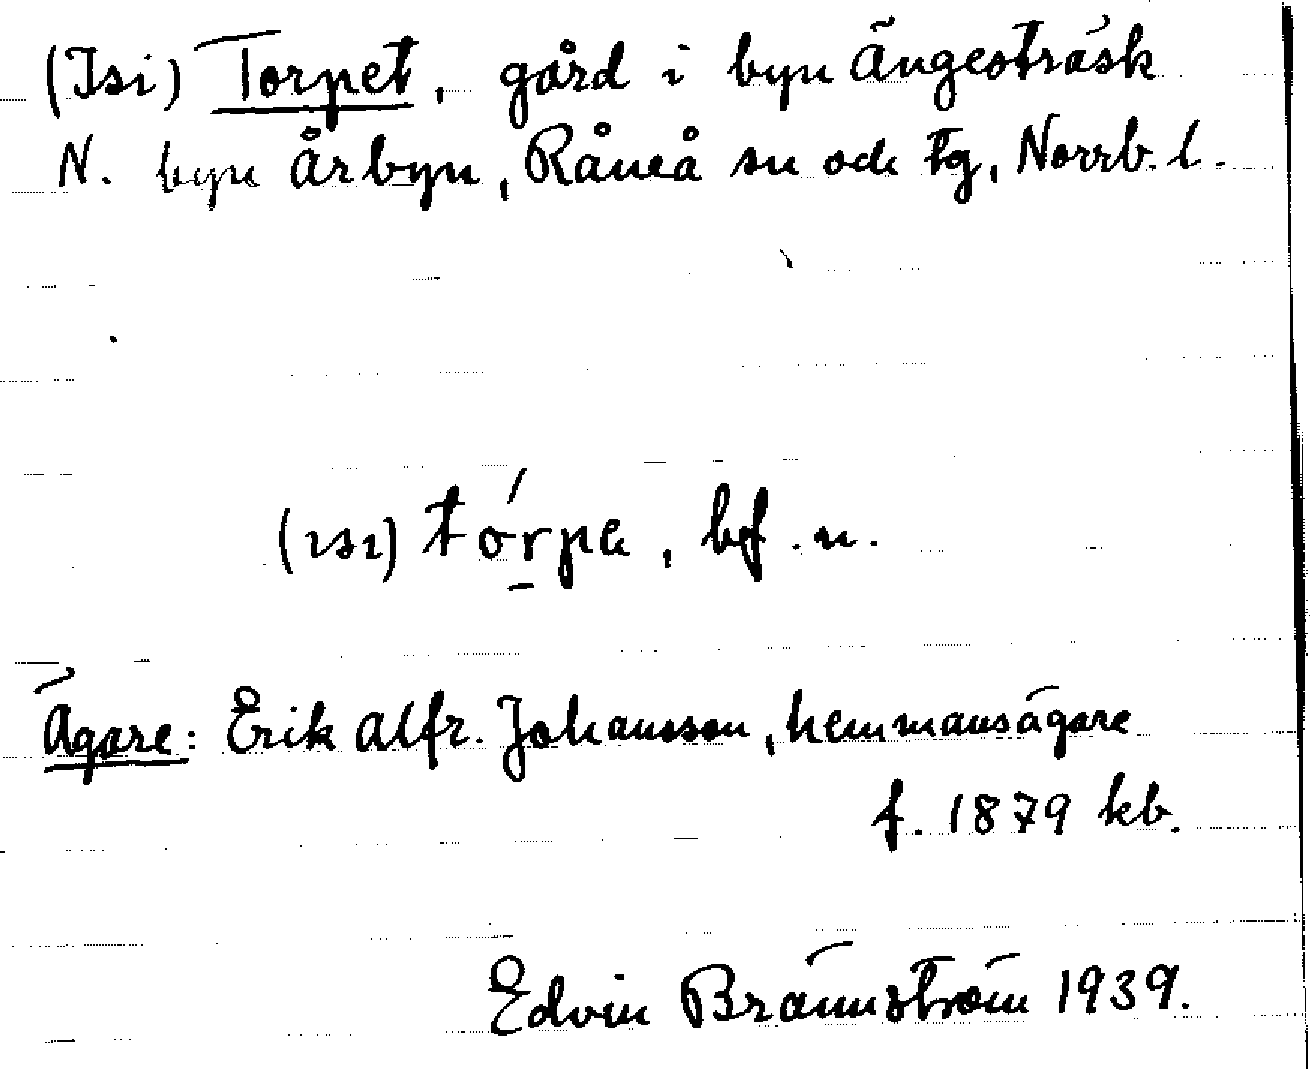 (Isi) Torpet, gård i byn Ängesträsk
N. byn Årbyn, Råneå sn och tg, Norrb. l.
(ısı) tórpa, bf. n.
Ägare: Erik Alfr. Johansson, hemmansägare
f. 1879 kb.
Edvin Brännström 1939.